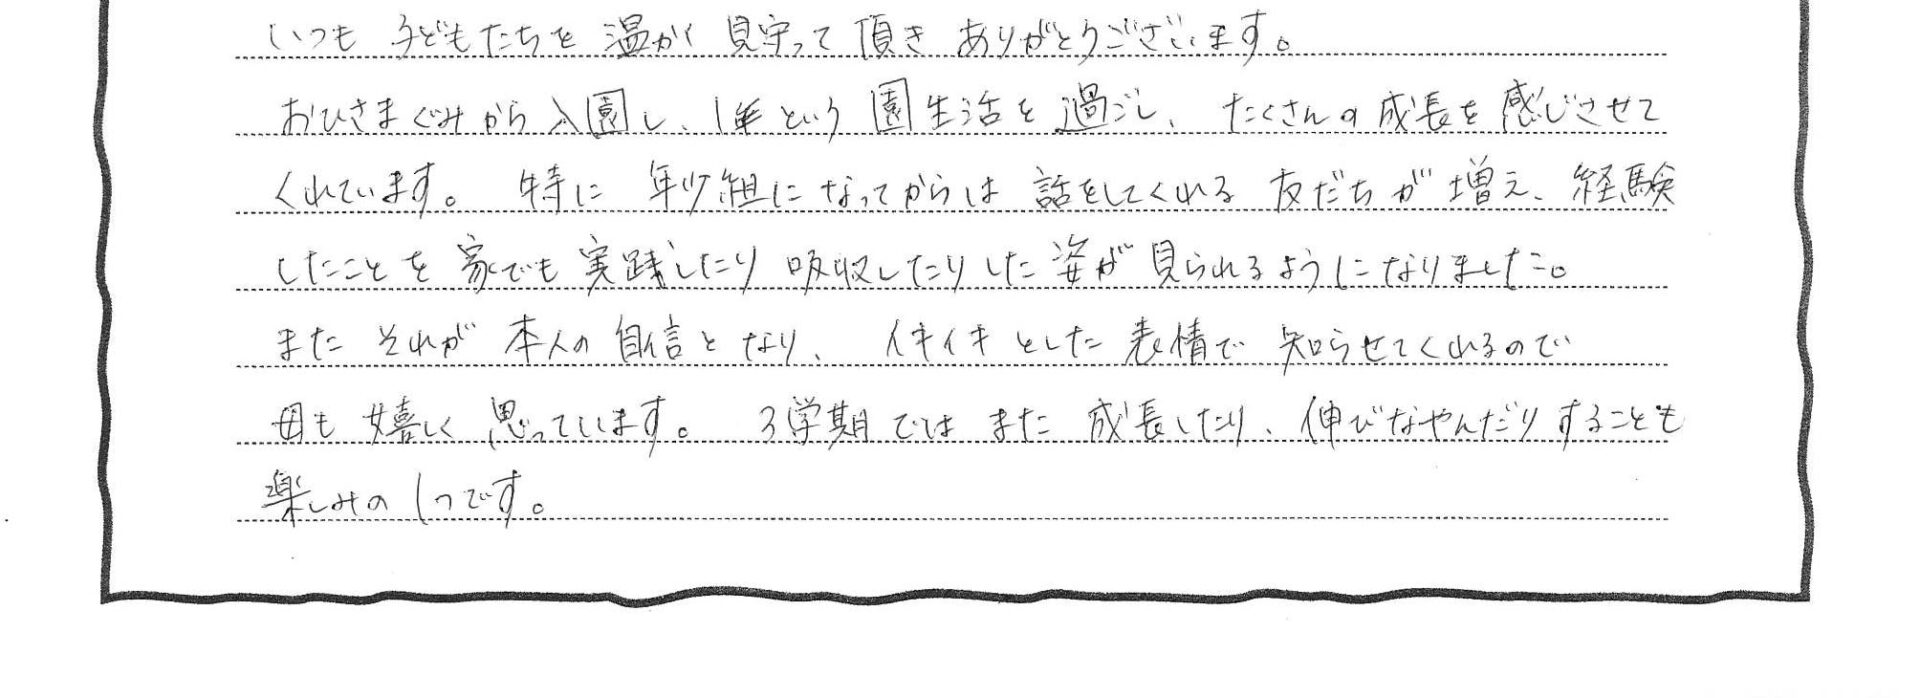 いつも子どもたちを温かく見守って頂きありがとうございます。
おひさまぐみから入園し、1年という園生活を過ごし、たくさんの成長を感じさせて
くれています。特に年少組になってからは話をしてくれる友だちが増え、経験
したことを家でも実践したり吸収したりした姿が見られるようになりました。
またそれが本人の自信となり、イキイキとした表情で知らせてくれるので
母も嬉しく思っています。3学期ではまた成長したり、伸びなやんだりすることも
楽しみの1つです。